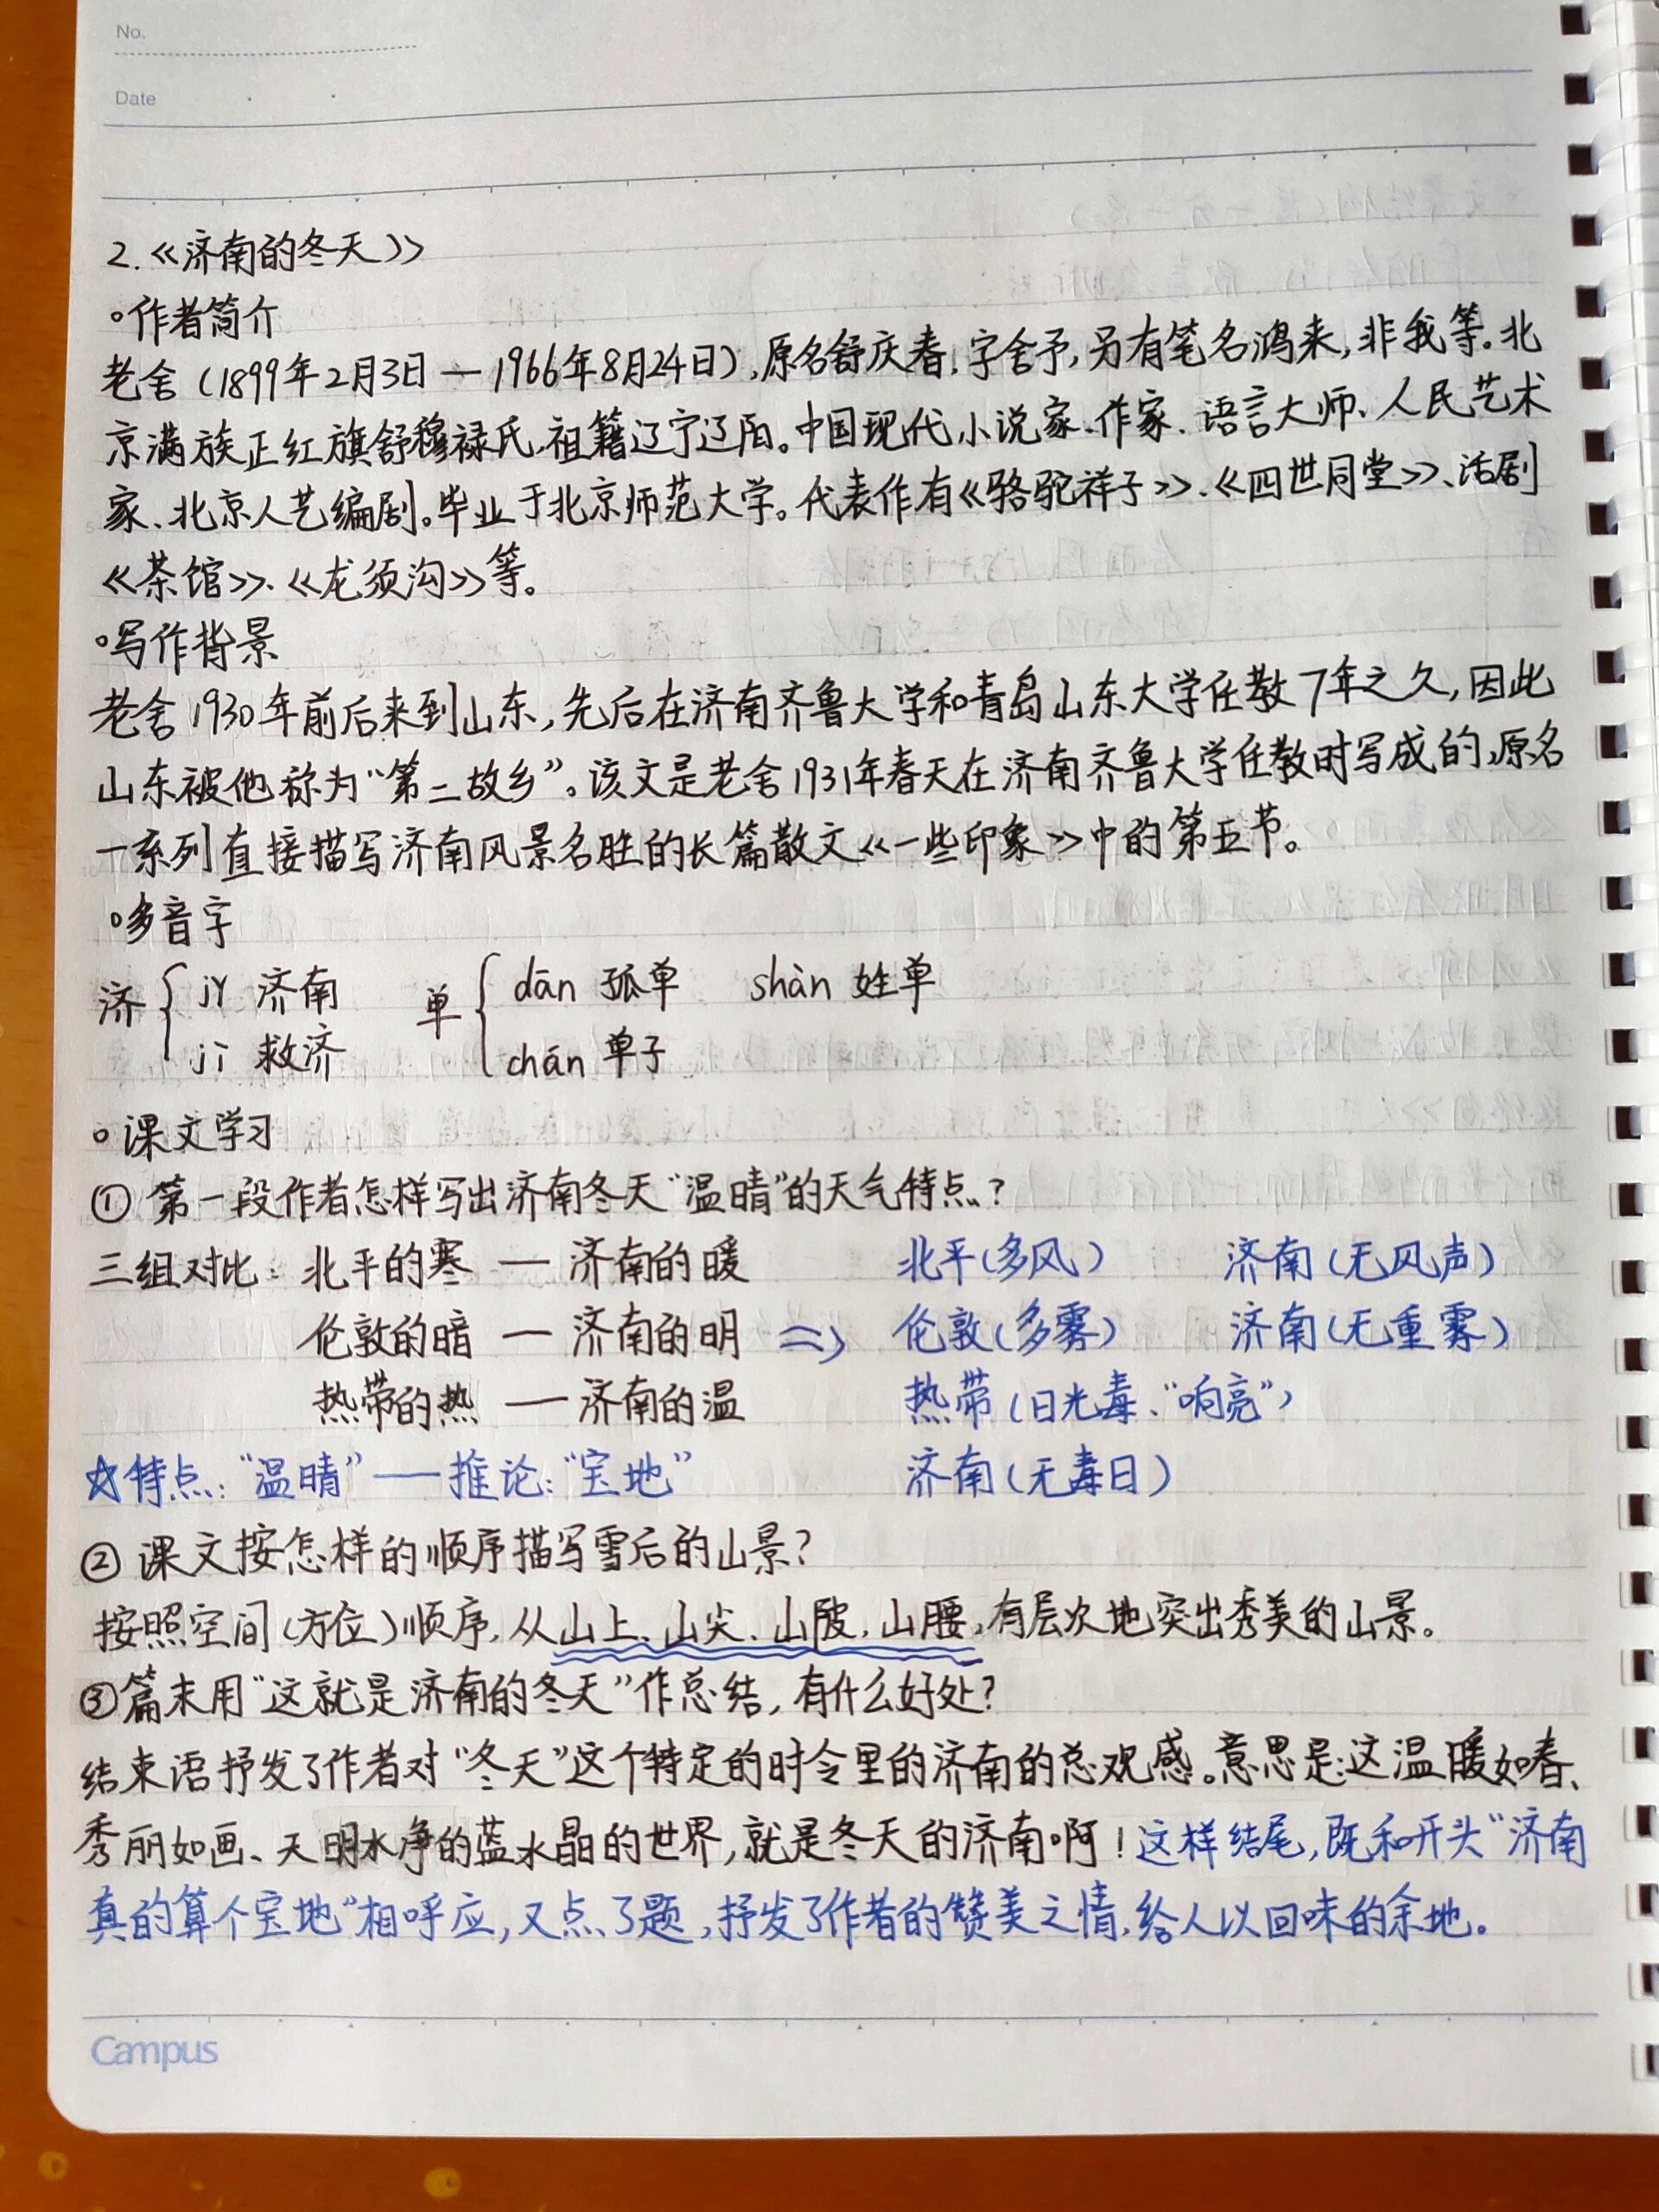 No.
Date
2.《济南的冬天》
°作者简介
老舍(1899年2月3日—1966年8月24日),原名舒庆春,字舍予,另有笔名鸿来,非我等。北
京满族正红旗舒穆禄氏,祖籍辽宁辽阳。中国现代小说家、作家、语言大师、人民艺术
家、北京人艺编剧。毕业于北京师范大学。代表作有《骆驼祥子》、《四世同堂》、话剧
《茶馆》、《龙须沟》等。
°写作背景
老舍1930年前后来到山东,先后在济南齐鲁大学和青岛山东大学任教7年之久,因此
山东被他称为“第二故乡”。该文是老舍1931年春天在济南齐鲁大学任教时写成的,原名
一系列直接描写济南风景名胜的长篇散文《一些印象》中的第五节。
°多音字
济{ jǐ 济南 单{ dān 孤单 shàn 姓单
jì 救济 chán 单子
°课文学习
① 第一段作者怎样写出济南冬天“温晴”的天气特点?
三组对比: 北平的寒 — 济南的暖 北平(多风) 济南(无风声)
伦敦的暗 — 济南的明 => 伦敦(多雾) 济南(无重雾)
热带的热 — 济南的温 热带(日光毒、“响亮”)
☆特点:“温晴”—推论:“宝地” 济南(无毒日)
② 课文按怎样的顺序描写雪后的山景?
按照空间(方位)顺序,从山上、山尖、山陂,山腰,有层次地突出秀美的山景。
③篇末用“这就是济南的冬天”作总结,有什么好处?
结束语抒发了作者对“冬天”这个特定的时令里的济南的总观感。意思是:这温暖如春、
秀丽如画、天明水净的蓝水晶的世界,就是冬天的济南啊!这样结尾,既和开头“济南
真的算个宝地“相呼应,又点了题,抒发了作者的赞美之情,给人以回味的余地。
Campus